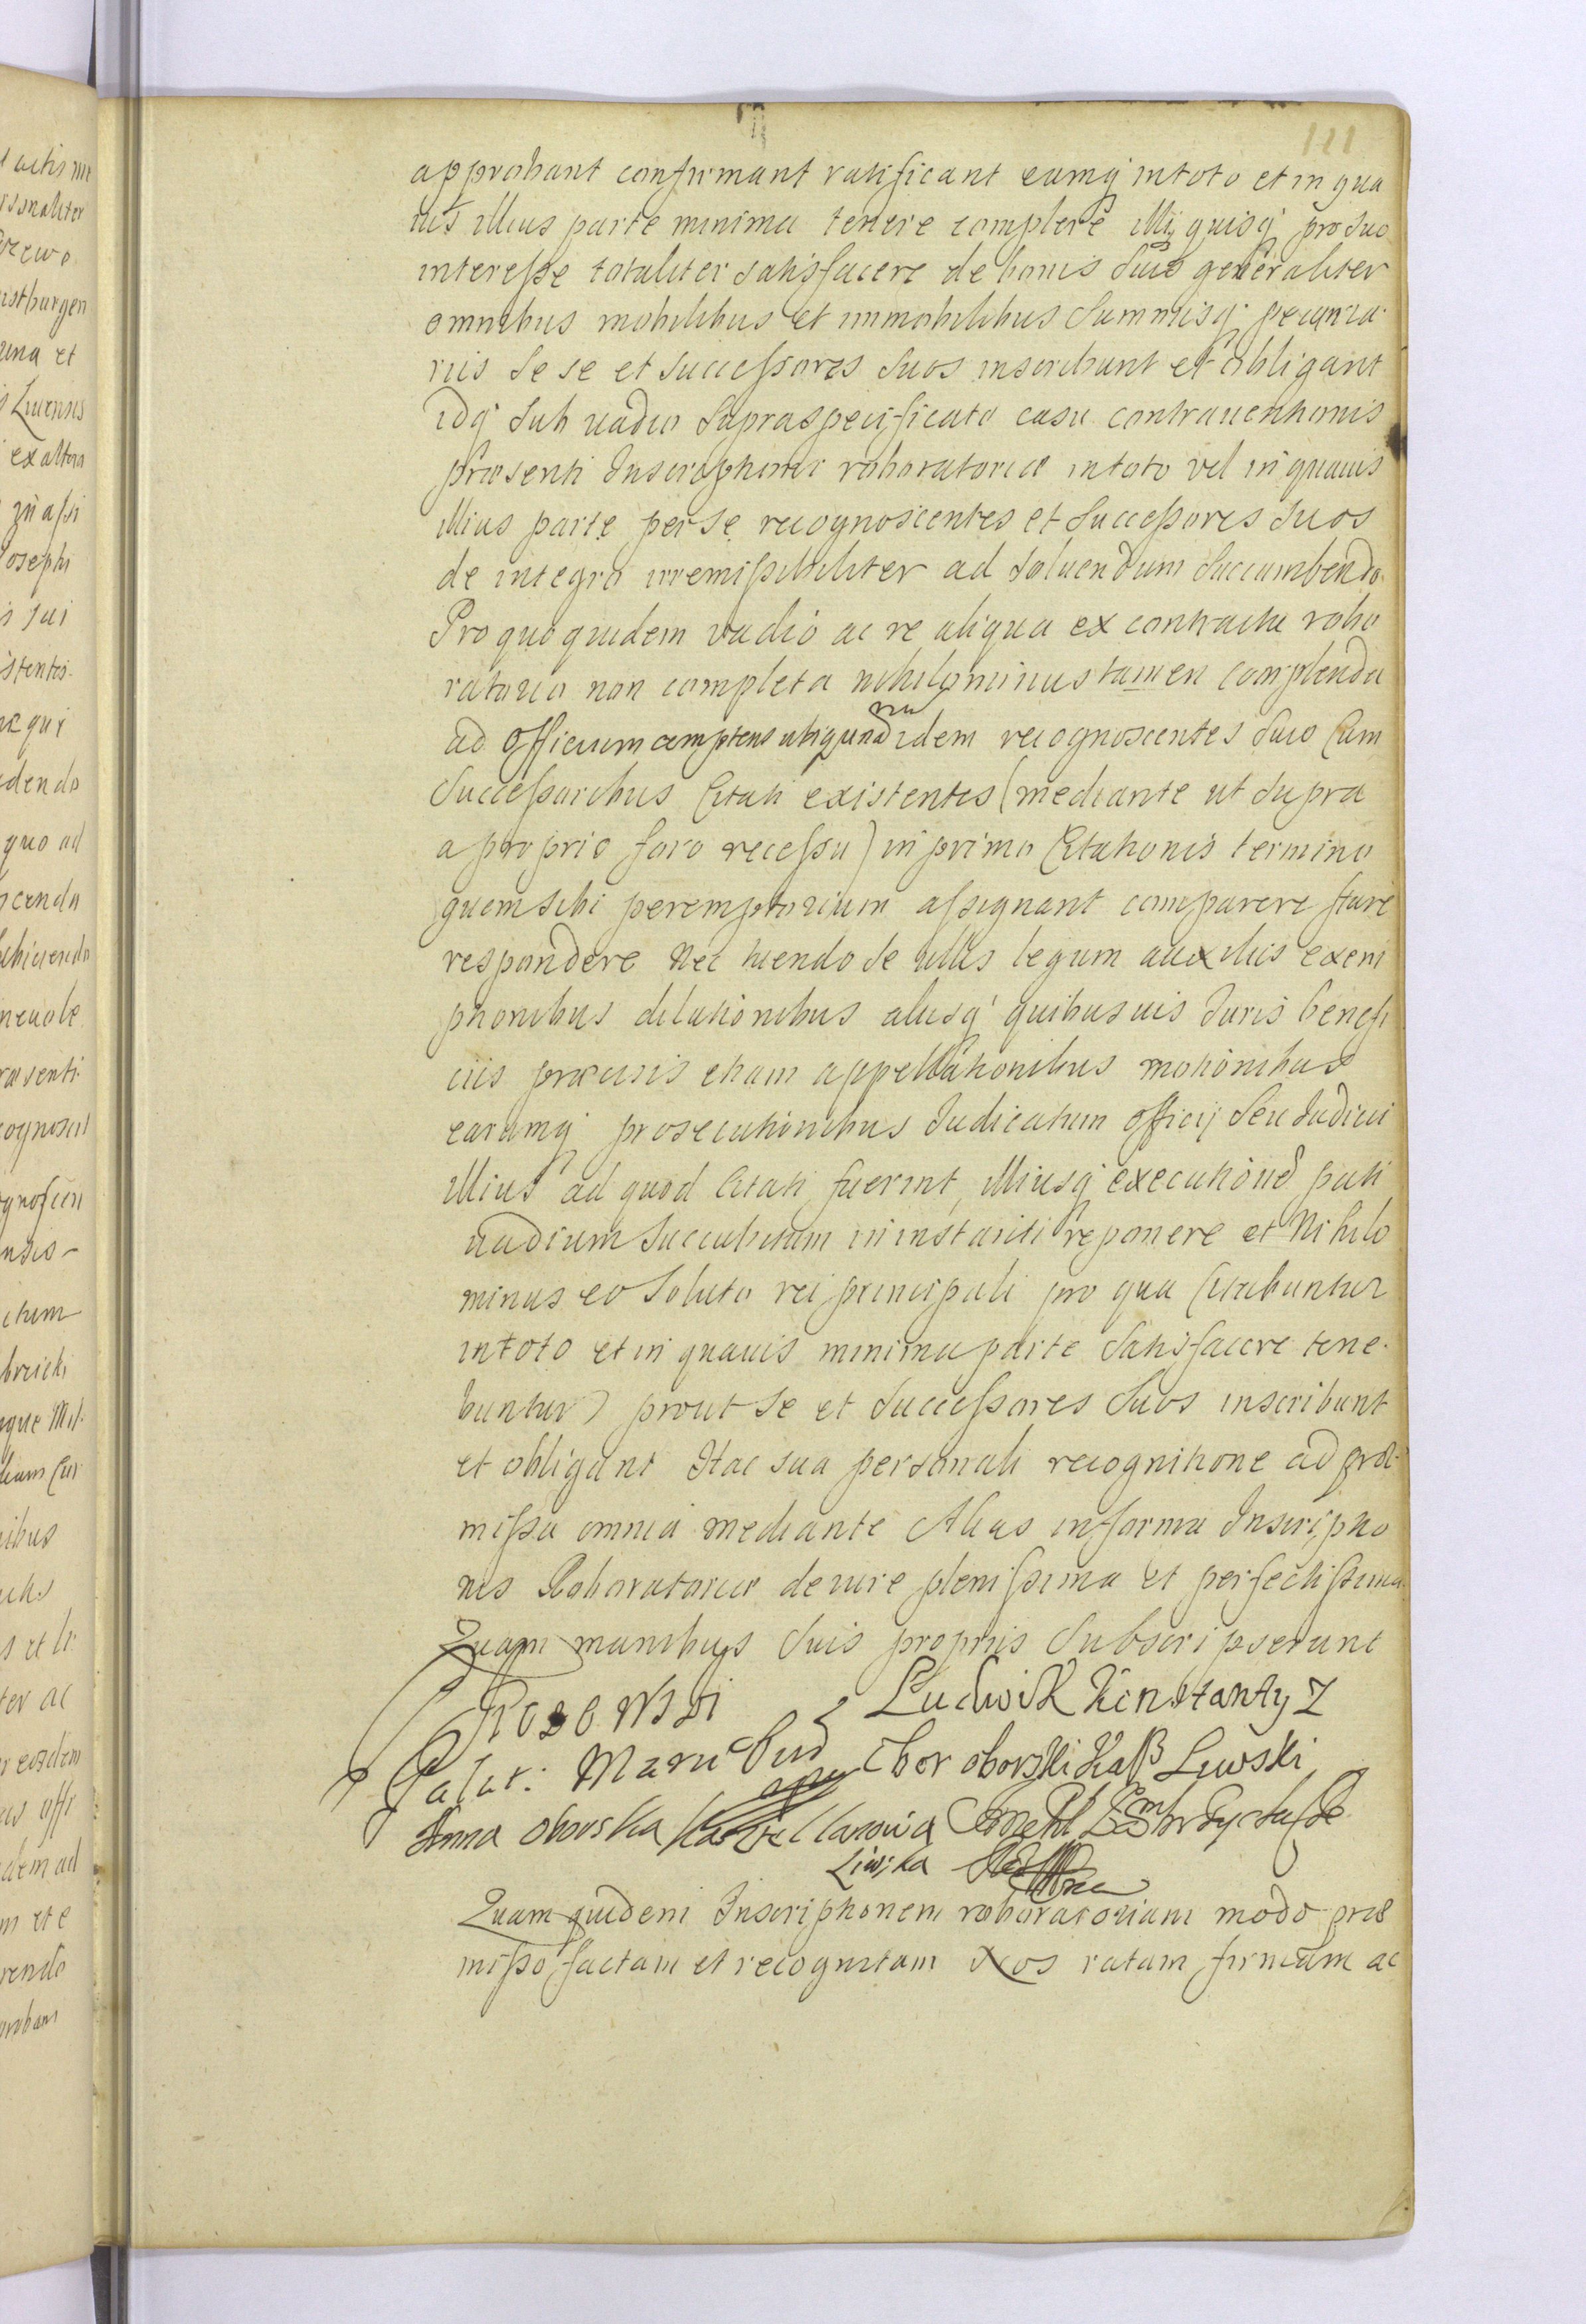 111
approbant confirmant ratificant eamq́ in toto et in qua
uis illius parte minima tenere complere illiq́ quisq́ pro suo
interesse totaliter satisfacere de bonis suis generaliter
omnibus mobilibus et immobilibus summisq́ pecunia
riis se se et successores suos inscribunt et obligant
idq́ sub vadio supraspecificato casu contrauentionis
præsenti Inscriptioni roboratoriæ in toto vel in quauis
illius parte per se recognoscentes et successores suos
de integro irremissibiliter ad soluendum succumbendo
Pro quo quidem vadio ac re aliqua ex contractu robo
ratorio non completa nihilominus tamen complenda
ad officium competens ubiqunq́ iidem recognoscentes suis cum
successoribus Citati existentes (mediante ut supra
a proprio foro recessu) in primo Citationis termino
quem sibi peremptorium assignant comparere stare
respondere nec tuendo se ullis legum auxiliis exem
ptionibus dilationibus aliisq́ quibusuis Juris benefi
ciis præcisis etiam appellationibus motionibus
earumq́ prosecutionibus Judicatum officij seu Judicii
illius ad quod Citati fuerint, illiusq́ executione pati
vadium succubitum in instanti reponere et nihilo
minus eo soluto rei principali pro qua Citabuntur
in toto et in quauis minima parte satisfacere tene
buntur) prout se et successores suos inscribunt
et obligant Hac sua personali recognitione ad præ
missa omnia mediante Alias in forma Inscriptio
nis Roboratoriæ de iure plenissima et perfectissima
Quam manibus suis propriis subscripserunt
Ludwik Konstanty z
Palat: Mari
obor oborski Kaß Liwski
Anna oborska Kasztellanowa
Liwska
Quam quidem Inscriptionem roboratoriam modo præ
misso factam et recognitam Nos ratam firmam ac